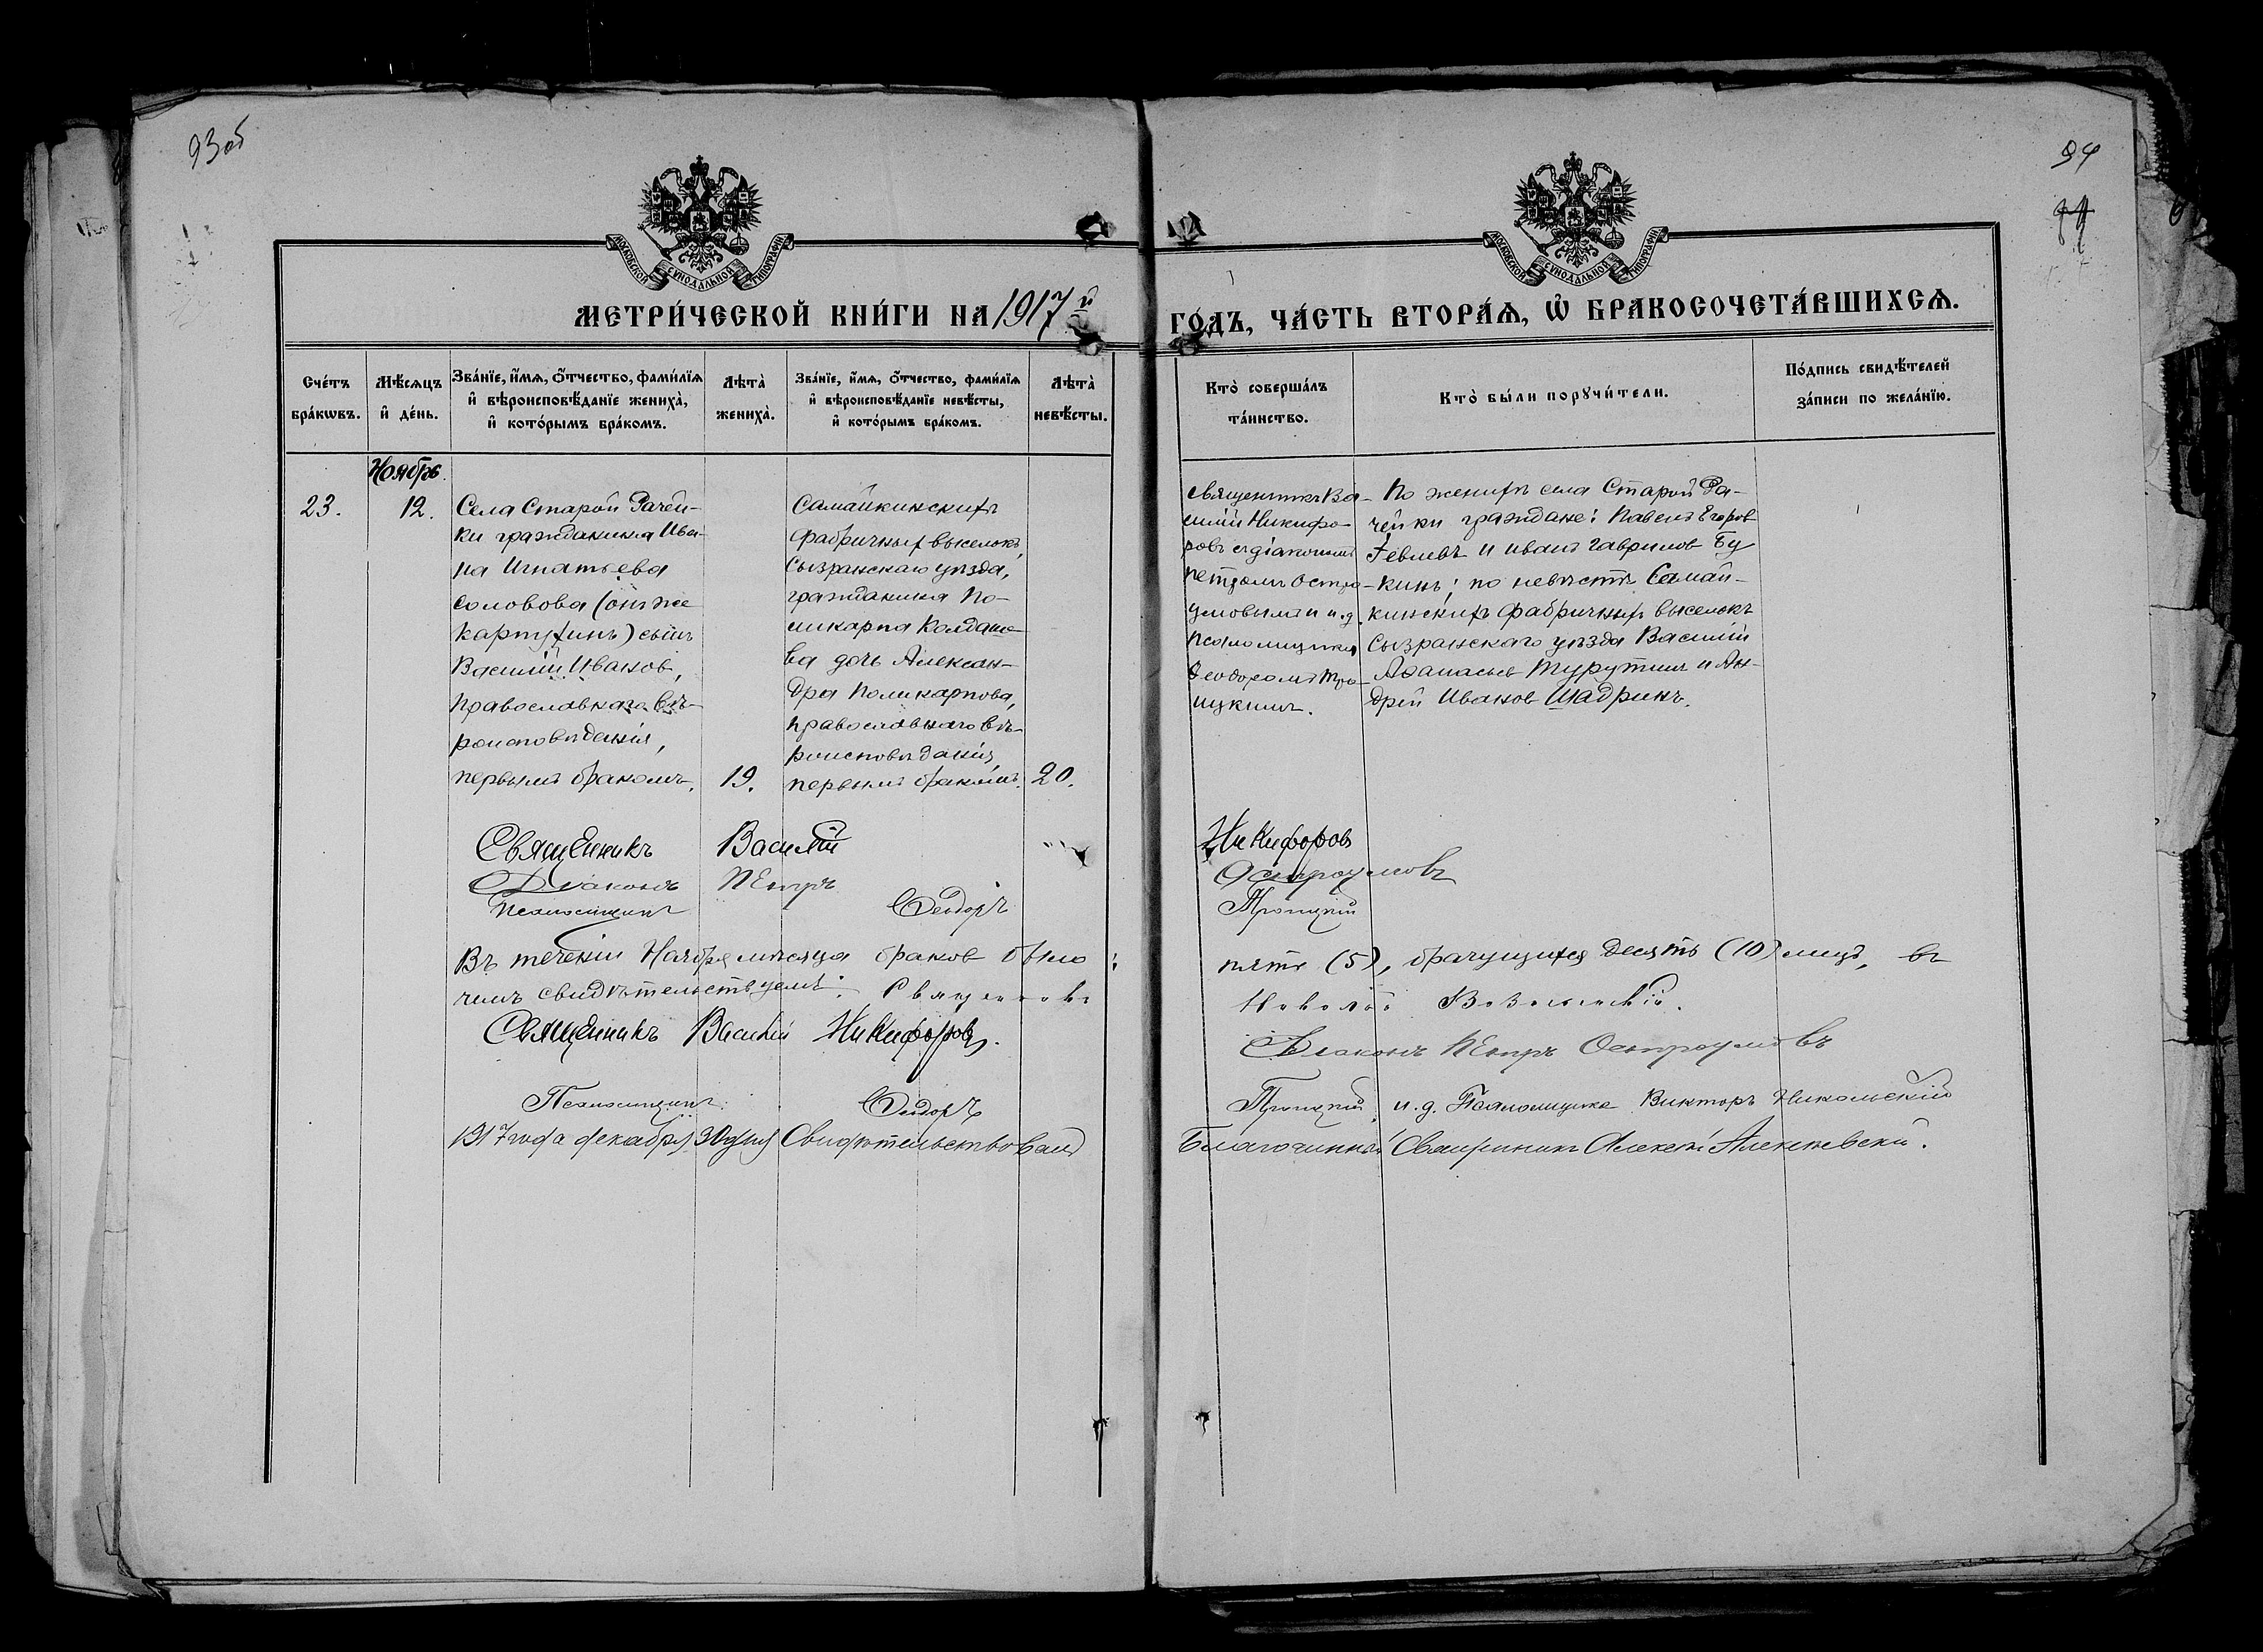 93об
94
МОСКОВСКОЙ СУНОДАЛЬНОЙ ТИПОГРАФІИ
МОСКОВСКОЙ СУНОДАЛЬНОЙ ТИПОГРАФІИ
МЕТРИ́ЧЕСКОЙ КНИ́ГИ НА 1917й ГО́ДЪ, ЧА́СТЬ ВТОРА́Я, Ѿ БРАКОСОЧЕТА́ВШИХСЯ.
Сче́тъ
бра́кѡвъ.
Мѣ́сяцъ
и҆ де́нь.
Зва́нїе, и҆́мя, ѻ҆́тчество, фами́лїя
и҆ вѣроисповѣ́данїе жениха̀,
и҆ кото́рымъ бра́комъ.
Лѣта̀
жениха̀.
Зва́нїе, и҆́мя, ѻ҆́тчество, фами́лїя
и҆ вѣроисповѣ́данїе невѣ́сты,
и҆ кото́рымъ бра́комъ.
Лѣта̀
невѣ́сты.
Кто̀ соверша́лъ
та́инство.
Кто̀ бы́ли порꙋчи́тели.
По́дпись свидѣ́телей
за́писи по жела́нїю.
23.
Ноябрь.
12.
Села Старой Рачей-
ки гражданина Ива-
на Игнатьева
Соловова (онъ же
Картузинъ) сынъ
Василій Иванов,
православнаго вѣ-
роисповѣданія,
первымъ бракомъ.
19.
Самайкинскихъ
фабричныхъ выселокъ,
Сызранскаго уѣзда,
гражданина По-
ликарпа Колдаше-
ва дочь Алексан-
дра Поликарпова,
православнаго вѣ-
роисповѣданія,
первымъ бракомъ.
20.
Священникъ Ва-
силій Никифо-
ровъ съ діакономъ
Петромъ Остро-
умовымъ и и.д.
псаломщика
Ѳеодоромъ Тро-
ицкимъ.
По женихѣ села Старой Ра-
чейки граждане: Павелъ Егоров
и Иванъ Гаврилов Бу-
кинъ; по невѣстѣ Самай-
кинскихъ фабричныхъ выселокъ
Сызранскаго уѣзда Василій
Аѳанасьев Турутинъ и Ан-
дрей Иванов Шадринъ.
Священникъ Василій Никифоров
Діаконъ Петръ Остроумовъ
Псаломщикъ Ѳеодоръ Троицкій
Въ теченіи Ноября мѣсяца браков было: пять (5), брачущихся десять (10) лицъ, въ
чемъ свидѣтельствуемъ: Священникъ Николай
Священникъ Василій Никифоровъ. Діаконъ Петръ Остроумовъ
Псаломщикъ Ѳеодоръ Троицкій, и.д. Псаломщика Викторъ Никольскій
1917 года декабря 30 дня Свидѣтельствовалъ Благочинный Священникъ Алексѣй Алекѣевскій.